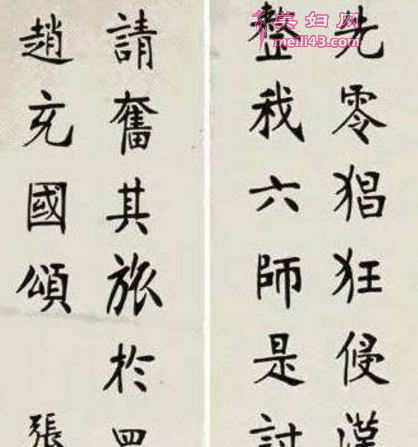 先零猖狂侵漢
整我六師是討
請奮其旅於罕
趙充國頌 張
美妇网
meili43.com